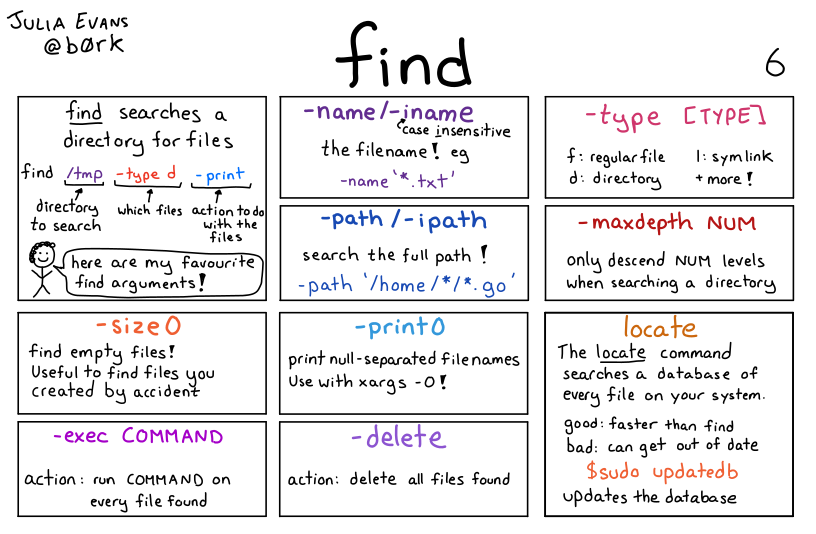 JULIA EVANS
@b0rk
find
6
find searches a
directory for files
find /tmp -type d -print
directory
to search
which files
action to do
with the
files
here are my favourite
find arguments!
-name/-iname
case insensitive
the filename! eg
-name '*.txt'
-type [TYPE]
f: regular file
l: symlink
d: directory
+ more!
-path /-ipath
search the full path !
-path '/home/*/*.go'
-maxdepth NUM
only descend NUM levels
when searching a directory
-size 0
find empty files!
Useful to find files you
created by accident
-print0
print null-separated filenames
Use with xargs -0!
locate
The locate command
searches a database of
every file on your system.
good: faster than find
bad: can get out of date
$sudo updatedb
updates the database
-exec COMMAND
action: run COMMAND on
every file found
-delete
action: delete all files found